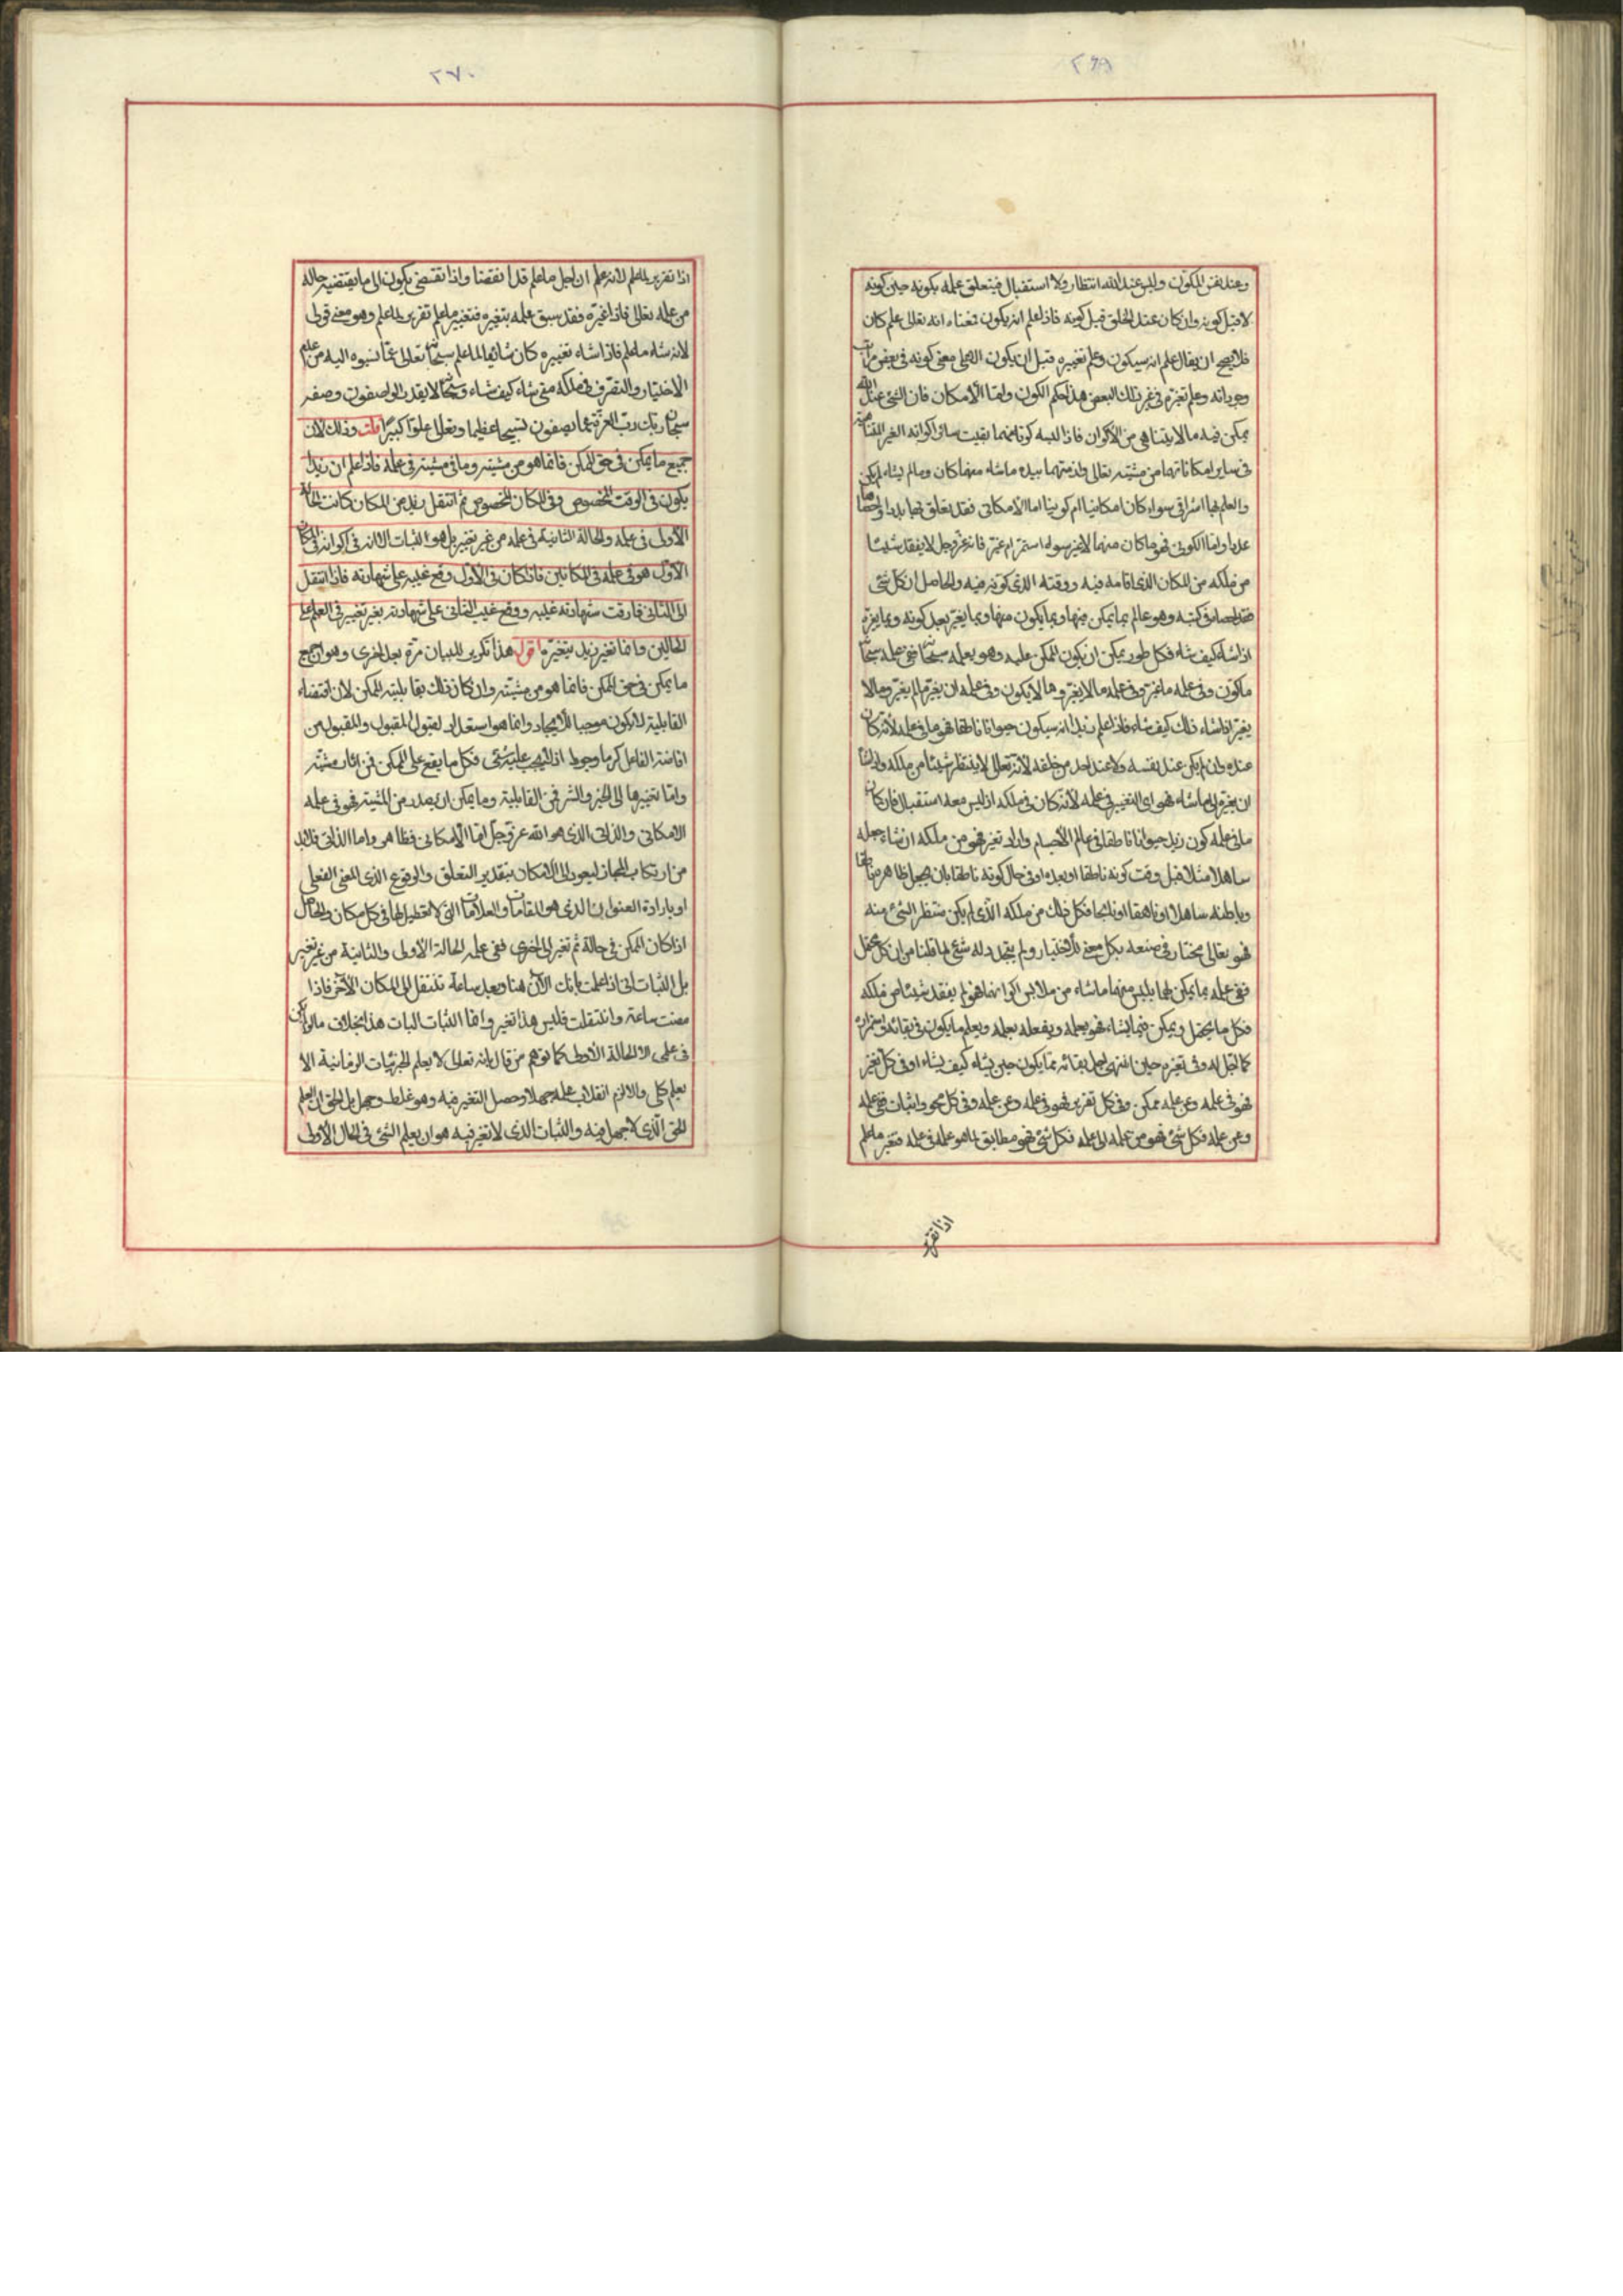 ٢٦٩
وعند نفس المكون وليس عند الله انتظار ولا استقبال فيتعلق علمه بكونه حين كونه
لا قبل كونه وان كان عند الخلق قبل كونه فاذا علم انه يكون فمعناه انه تعالى علم كان
فلا يصح ان يقال علم انه سيكون وعلم تغييره قبل ان يكون العلمى معنى كونه فى بعض مراتب
وجوداته وعلم تغيره فى غير ذلك البعض هذا حكم الكون واما الامكان فان الشئ عند الله
يمكن فيه ما لا يتناهى من الاكوان فاذا البسه كونا منها بقيت سائر اكوانه الغير المتناهية
فى ساير امكاناتها من مشيته تعالى وازمتها بيده ما شاء منها كان وما لم يشاء لم يكن
والعلم بها اشراقى سواء كان امكانيا ام كونيا اما الامكانى فقد تعلق بها بدا واحصاها
عددا واما الكونى فهو ما كان منها لا غير سواء استمر ام غير فانه عز وجل لا يفقد شيئا
من ملكه من المكان الذى اقامه فيه ووقته الذى كونه فيه والحاصل ان كل شئ
فقد احصاه فى كتبه وهو عالم بما يمكن منها وبما يكون منها وبما يغير بعد كونه وبما يغيره
اذا شاء كيف شاء فكل طور يمكن ان يكون الممكن عليه وهو يعلمه سبحانه ففى علمه سبحانه
ما كون وفى علمه ما غير وفى علمه ما لا يغير وما لا يكون وفى علمه ان يغير ما لم يغير وما لا
يغير اذا شاء ذلك كيف شاء فاذا علم زيدا انه سيكون حيوانا ناطقا فهو ما فى علمه لانه كان
عنده وان لم يكن عند نفسه ولا عند احد من خلقه لانه تعالى لا ينتظر شيئا من ملكه واذا شاء
ان يغيره الى ما شاء فهو اى التغيير فى علمه لانه كان فى ملكه اذ ليس معه استقبال فان كان
ما فى علمه كون زيد حيوانا ناطقا فى عالم الاجسام واراد تغيره فهو من ملكه ان شاء جعله
صاهلا مثلا قبل وقت كونه ناطقا او بعده او فى حال كونه ناطقا بان يجعل ظاهره ناطقا
وباطنه صاهلا او ناهقا او نابحا فكل ذلك من ملكه الذى لم يكن منتظر الشئ منه
فهو تعالى مختار فى صنعه بكل معنى للاختيار ولم يتجدد له شئ لما قلنا من ان كل محتمل
ففى علمه بما يمكن لها يلبس منها ما شاء من ملابس اكوانها هو لم يفقد شيئا من ملكه
فكل ما يحتمل ويمكن فيما يشاء فهو يعلمه ويفعله بعلمه ويعلم ما يكون فى بقائه واستمراره
كما لا تجل له وفى تغيره حين انتهى اجل بقائه بما يكون حين يشاء كيف يشاء او فى كل تغير
فهو فى علمه وعن علمه ممكن وفى كل تقرير فهو فى علمه وعن علمه وفى كل محو واثبات ففى علمه
وعن علمه فكل شئ فهو من علمه الى علمه فكل شئ فهو مطابق لما هو علمه فى علمه فتغير ما علم
اذا تقرير
٢٧٠
اذا تقرير لما علم لانه علم ان اجل ما علم قد انقضا واذا انقضى يكون الى ما يقتضيه حاله
من علمه تعالى فاذا غيره فقد سبق علمه بتغيره فتغيير ما علم تقرير لما علم وهو معنى قولى
لانه شاء ما علم فاذا شاء تغييره كان شائيا لما علم سبحانه وتعالى عما نسبوه اليه من عدم
الاختيار والتصرف فى ملكه متى شاء كيف شاء وسبحانه لا يقدر الواصفون وصفه
سبحان ربك رب العزة عما يصفون تسبيحا عظيما وتعالى علوا كبيرا قلت وذلك لان
جميع ما يمكن فى حق الممكن فانما هو من مشيته وما فى مشيته فى علمه فاذا علم ان زيدا
يكون فى الوقت المخصوص وفى المكان المخصوص ثم انتقل زيد من المكان كانت الحالة
الاولى فى علمه والحالة الثانية فى علمه من غير تغيير بل هو الثبات الا انه فى اكوانه فى المكان
الاول هو فى علمه فى المكانين فاذا كان فى الاول وقع غيبه على شهادته فاذا انتقل
الى الثانى فارقت شهادته غيبه ووقع غيب الثانى على شهادته بغير تغيير فى العلم على
الحالين وانما تغير زيد بتغيره اقول هذا تكرير للبيان مرة بعد اخرى وهو ان جميع
ما يمكن فى حق الممكن فانما هو من مشيته وان كان ذلك بقابليته للمكن لان اقتضاء
القابلية لا يكون موجبا للايجاد وانما هو استعداد لقبول المقبول والمقبول من
افاضة الفاعل كرما وجودا اذ لا يجب عليه شئ فكل ما يقع على الممكن فمن اثار مشيته
واما تغييرها الى الخير والشر فمن القابلية وما يمكن ان يصدر من المشية فهو فى علمه
الامكانى والذاتى الذى هو الله عز وجل اما الامكانى فظاهر واما الذاتى فلا بد
من ارتكاب المجاز ليعود الى الامكان بتقدير التعلق والوقوع الذى المعنى الفعلى
او بارادة العنوان الذى هو المقامات والعلامات التى لا تعطيل لها فى كل مكان والحاصل
اذا كان الممكن فى حالة ثم تغير الى اخرى ففى علمه الحالة الاولى والثانية من غير تغيير
بل الثبات انى اذا علمت بانك الآن هنا وبعد ساعة تنتقل الى المكان الاخر فاذا
مضت ساعة وانتقلت فليس هذا تغير وانما الثبات البات هذا بخلاف ما لو لم يكن
فى علمى الا الحالة الاولى كما توهم من قال بانه تعالى لا يعلم الجزئيات الزمانية الا
بعلم كلى والا لزم انقلاب علمه جهلا وحصل التغير فيه وهو غلط وجهل بل الحق ان العلم
الحق الذى لا جهل فيه والثبات الذى لا تغير فيه هو ان يعلم الشئ فى الحال الاولى